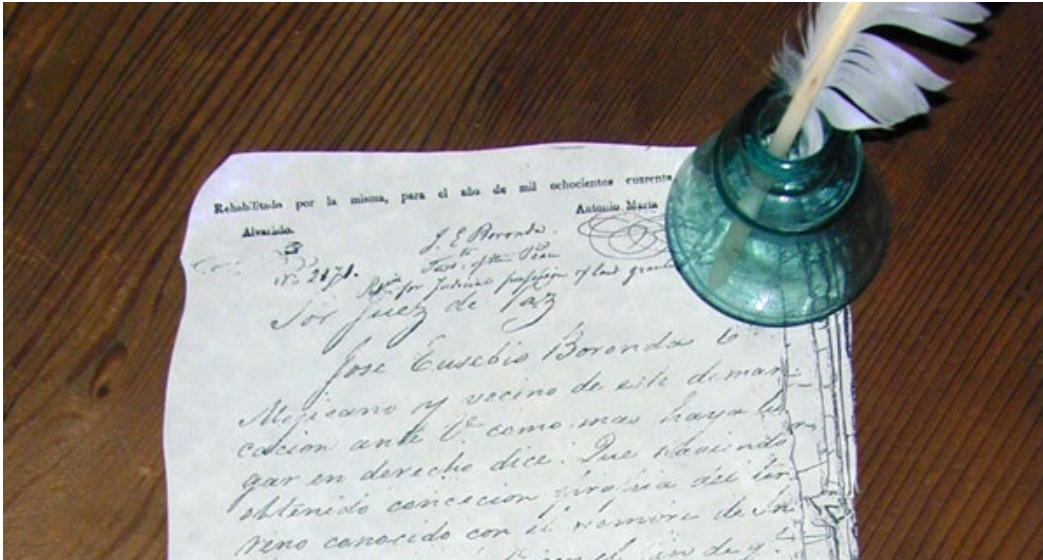 Rehabilitado por la misma, para el año de mil ochocientos cuarenta
Antonio Maria
Alvarado.
J. E. Boronda.
No 2171.
Just. of the Peace
for Judicial possession of land
Sor Juez de Paz
Jose Eusebio Boronda
Mejicano y vecino de este demar
cacion ante V. como mas haya lu
gar en derecho dice. Que haviendo
obtenido concecion propia del ter
reno conocido con el nombre de